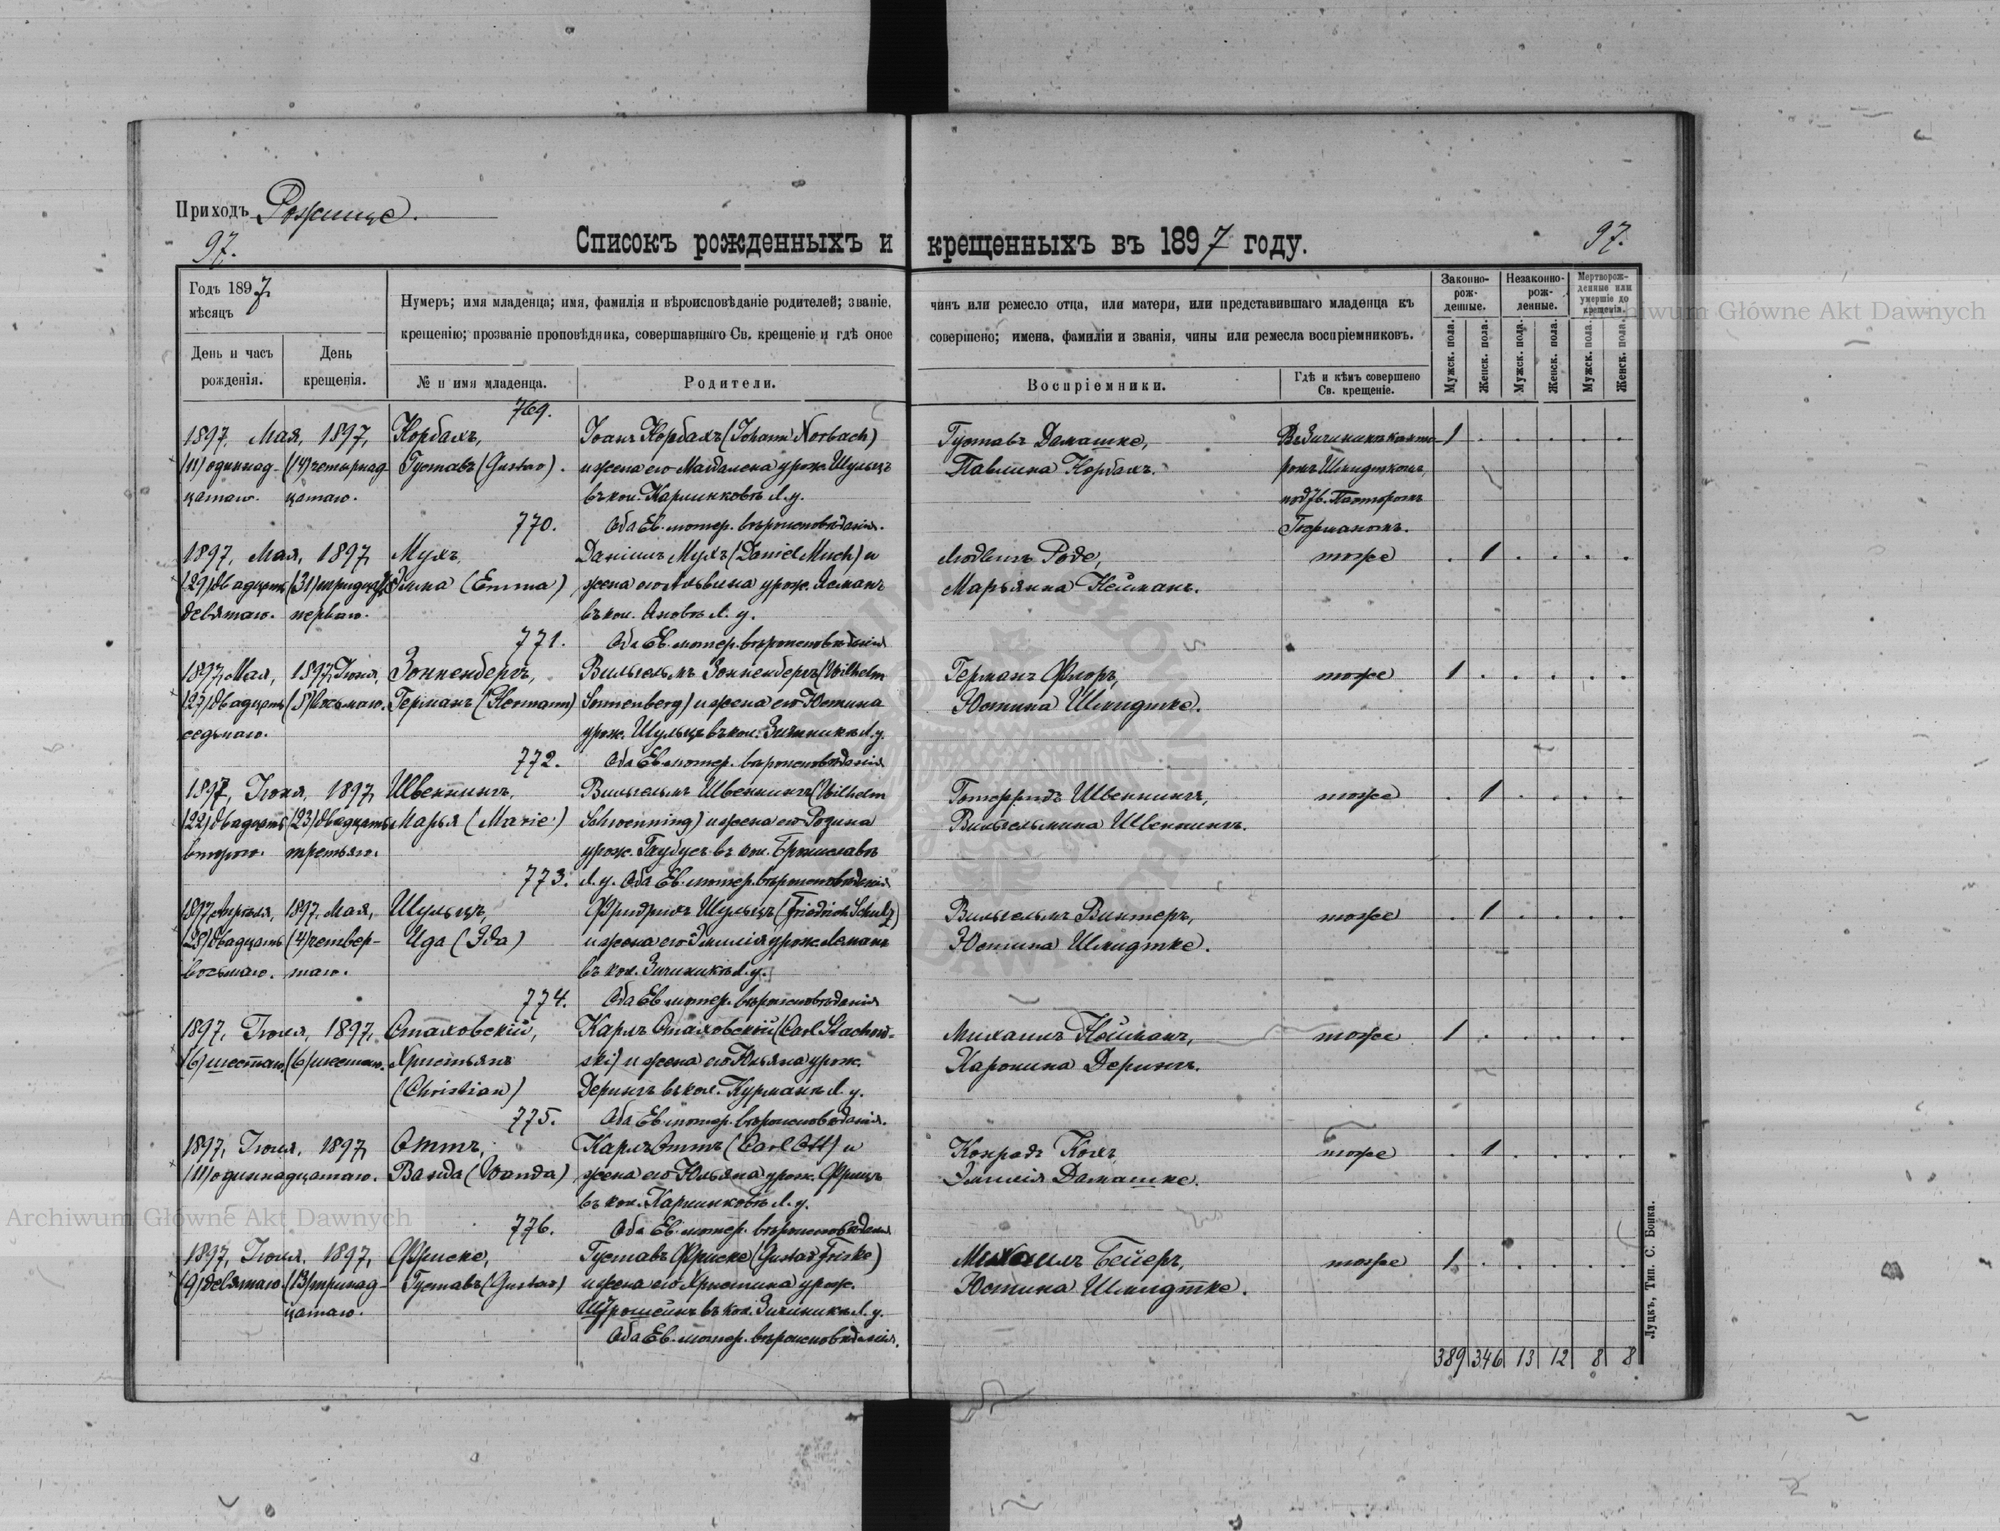 Приходъ Рожище.
97.
97.
Списокъ рожденныхъ и крещенныхъ въ 1897 году.
Годъ 1897
мѣсяцъ
День и часъ рожденія.
День крещенія.
Нумеръ; имя младенца; имя, фамилія и вѣроисповѣданіе родителей; званіе, чинъ или ремесло отца, или матери, или представившаго младенца къ
крещенію; прозваніе проповѣдника, совершавшаго Св. крещеніе и гдѣ оное совершено; имена, фамиліи и званія, чины или ремесла воспріемниковъ.
№ и имя младенца.
Родители.
Воспріемники.
Гдѣ и кѣмъ совершено Св. крещеніе.
Законно-рож-денные.
Незаконно-рож-денные.
Мертворож-денные или умершіе до крещенія.
Мужск. пола. Женск. пола. Мужск. пола. Женск. пола. Мужск. пола. Женск. пола.
769.
1897, Мая, 1897,
(11) одиннад- (14) четырнад-
цатаго. цатаго.
Корбахъ,
Густавъ (Gustav).
Іоанъ Корбахъ (Johann Korbach)
и жена его Магдалена урож. Шульцъ
въ кол. Карлинковъ Л. у.
Оба Ев. лютер. вѣроисповѣданія.
Густавъ Дамашке,
Павлина Корбахъ.
Въ Зичиникѣ канто-
ромъ Шмидткомъ,
подтв. Пасторомъ
Германомъ.
1
770.
1897, Мая, 1897,
(29) двадцать (31) тридцать
девятаго. перваго.
Мухъ,
Эмма (Emma)
Даніилъ Мухъ (Daniel Much) и
жена его Альвина урож. Ясманъ
въ кол. Яновкѣ Л. у.
Оба Ев. лютер. вѣроисповѣданія
Людвигъ Роде,
Марьянна Нейманъ.
тоже
1
771.
1897, Мая, 1897, Іюня,
(27) двадцать (8) восьмаго.
седьмаго.
Зонненбергъ,
Германъ (Hermann)
Вильгельмъ Зонненбергъ (Wilhelm
Sonnenberg) и жена его Юстина
урож. Шульцъ въ кол. Зичиникѣ Л. у.
Оба Ев. лютер. вѣроисповѣданія
Германъ Флоръ,
Юстина Шмидтке.
тоже
1
772.
1897, Іюня, 1897,
(22) двадцать (23) двадцать
втораго. третьяго.
Швеннингъ,
Марья (Marie)
Вильгельмъ Швеннингъ (Wilhelm
Schwenning) и жена его Розина
урож. въ кол. Брониславовъ
Л. у. Оба Ев. лютер. вѣроисповѣданія
Готфридъ Швеннингъ,
Вильгельмина Швеннингъ.
тоже
1
773.
1897, Апрѣля, 1897, Мая,
(28) двадцать (4) четвер-
восьмаго. таго.
Шульцъ,
Ида (Ida)
Фридрихъ Шульцъ (Friedrich Schulz)
и жена его Эмилія урож. Леманъ
въ кол. Зичиникѣ Л. у.
Оба Ев. лютер. вѣроисповѣданія
Вильгельмъ Винтеръ,
Юстина Шмидтке.
тоже
1
774.
1897, Іюля, 1897,
(6) шестаго. (6) шестаго.
Стаховскій,
Христьянъ
(Christian)
Карлъ Стаховскій (Carl Stachow-
ski) и жена его Юльяна урож.
Дерингъ въ кол. Курманъ Л. у.
Оба Ев. лютер. вѣроисповѣданія.
Михаилъ Нейманъ,
Каролина Дерингъ.
тоже
1
775.
1897, Іюля, 1897,
(11) одиннадцатаго.
Оттъ,
Ванда (Wanda)
Карлъ Оттъ (Carl Ott) и
жена его Юльяна урож. Фрицъ
въ кол. Карлинковъ Л. у.
Оба Ев. лютер. вѣроисповѣданія
Конрадъ Кохъ,
Эмилія Дамашке.
тоже
1
776.
1897, Іюля, 1897,
(9) девятаго. (13) тринад-
цатаго.
Фриске,
Густавъ (Gustav)
Густавъ Фриске (Gustav Friske)
и жена его Христина урож.
въ кол. Зичиникѣ Л. у.
Оба Ев. лютер. вѣроисповѣданія.
Михаилъ Бейеръ,
Юстина Шмидтке.
тоже
1
389 346 13 12 8 8
Луцкъ, Тип. С. Бонка.
Archiwum Główne Akt Dawnych
Archiwum Główne Akt Dawnych